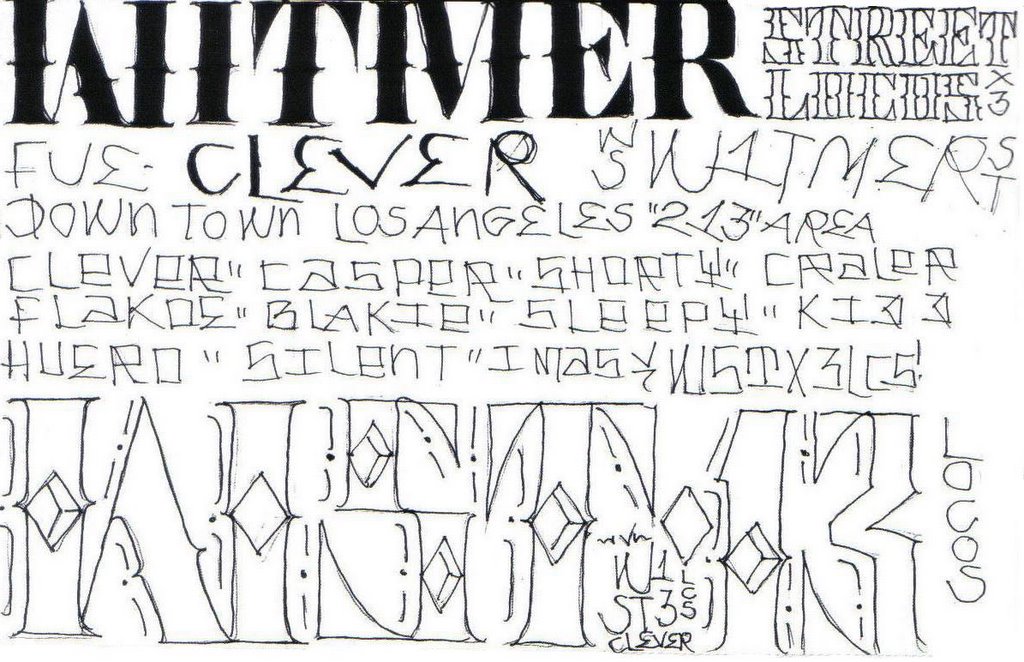 WITMER STREET
LOCOS X3
FUE: CLEVER WS WITMER ST
DOWN TOWN LOS ANGELES "213" AREA
CLEVER" CASPER" SHORTY" CRALER
FLAKOE" BLAKIE" SLEEPY" KIDD
HUERO" SILENT" I MAS Y WSTX3LCS!
WST X3
LOCOS
W1
ST 3 LCS
CLEVER